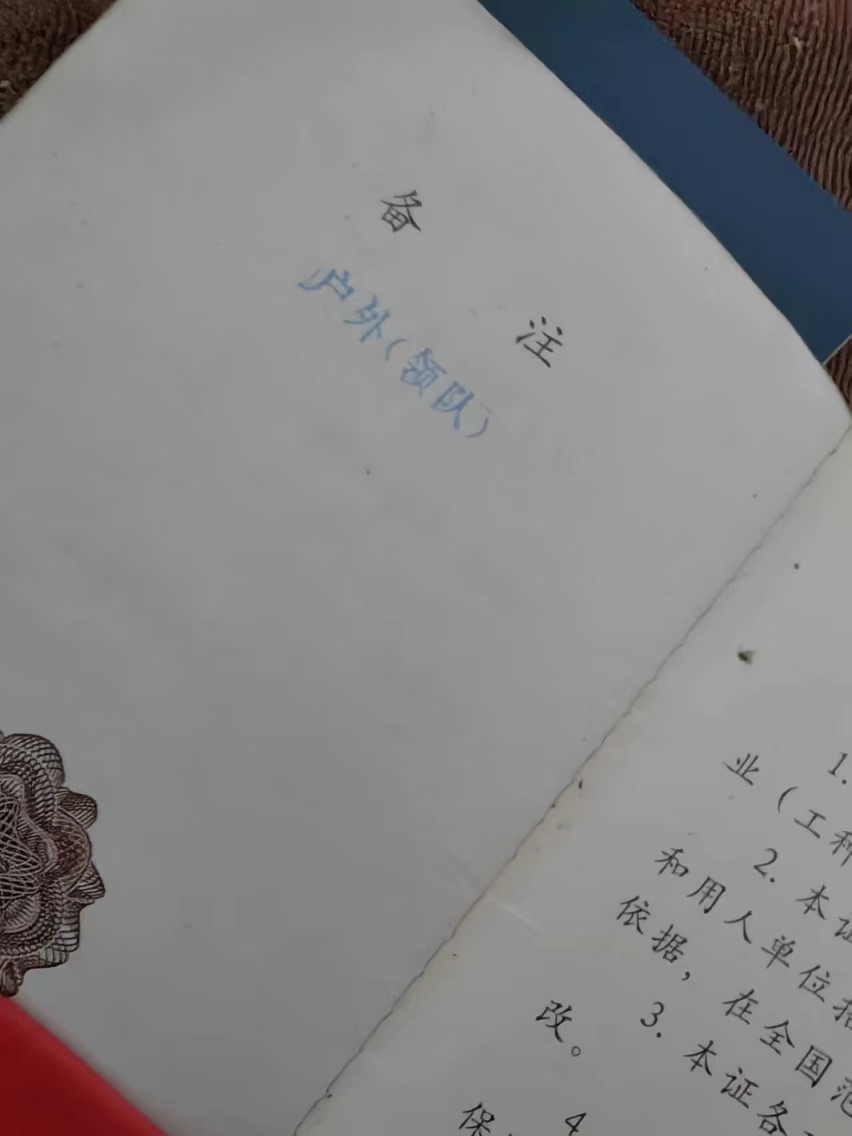 备 注
户外(领队)
1.
业(工种
2. 本证
和用人单位
依据,在全国范
3. 本证各
改。
4
保